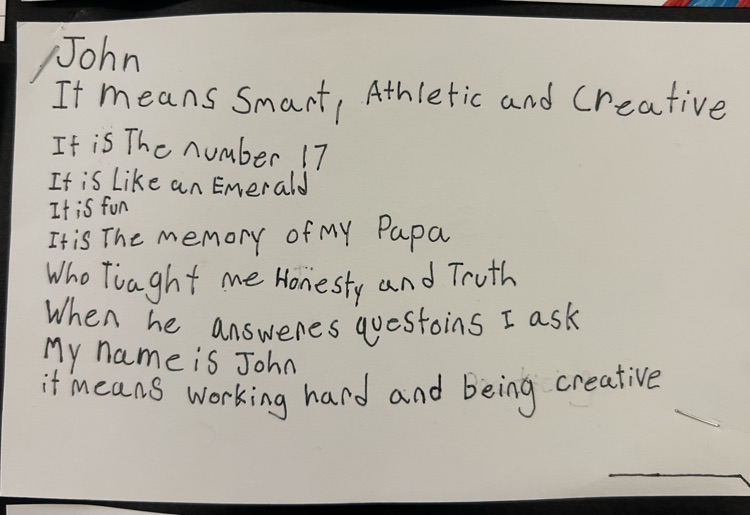 John
It means Smart, Athletic and Creative
It is The number 17
It is Like an Emerald
It is fun
It is The memory of my Papa
Who Tiaght me Honesty and Truth
When he answeres questoins I ask
My name is John
it means working hard and being creative